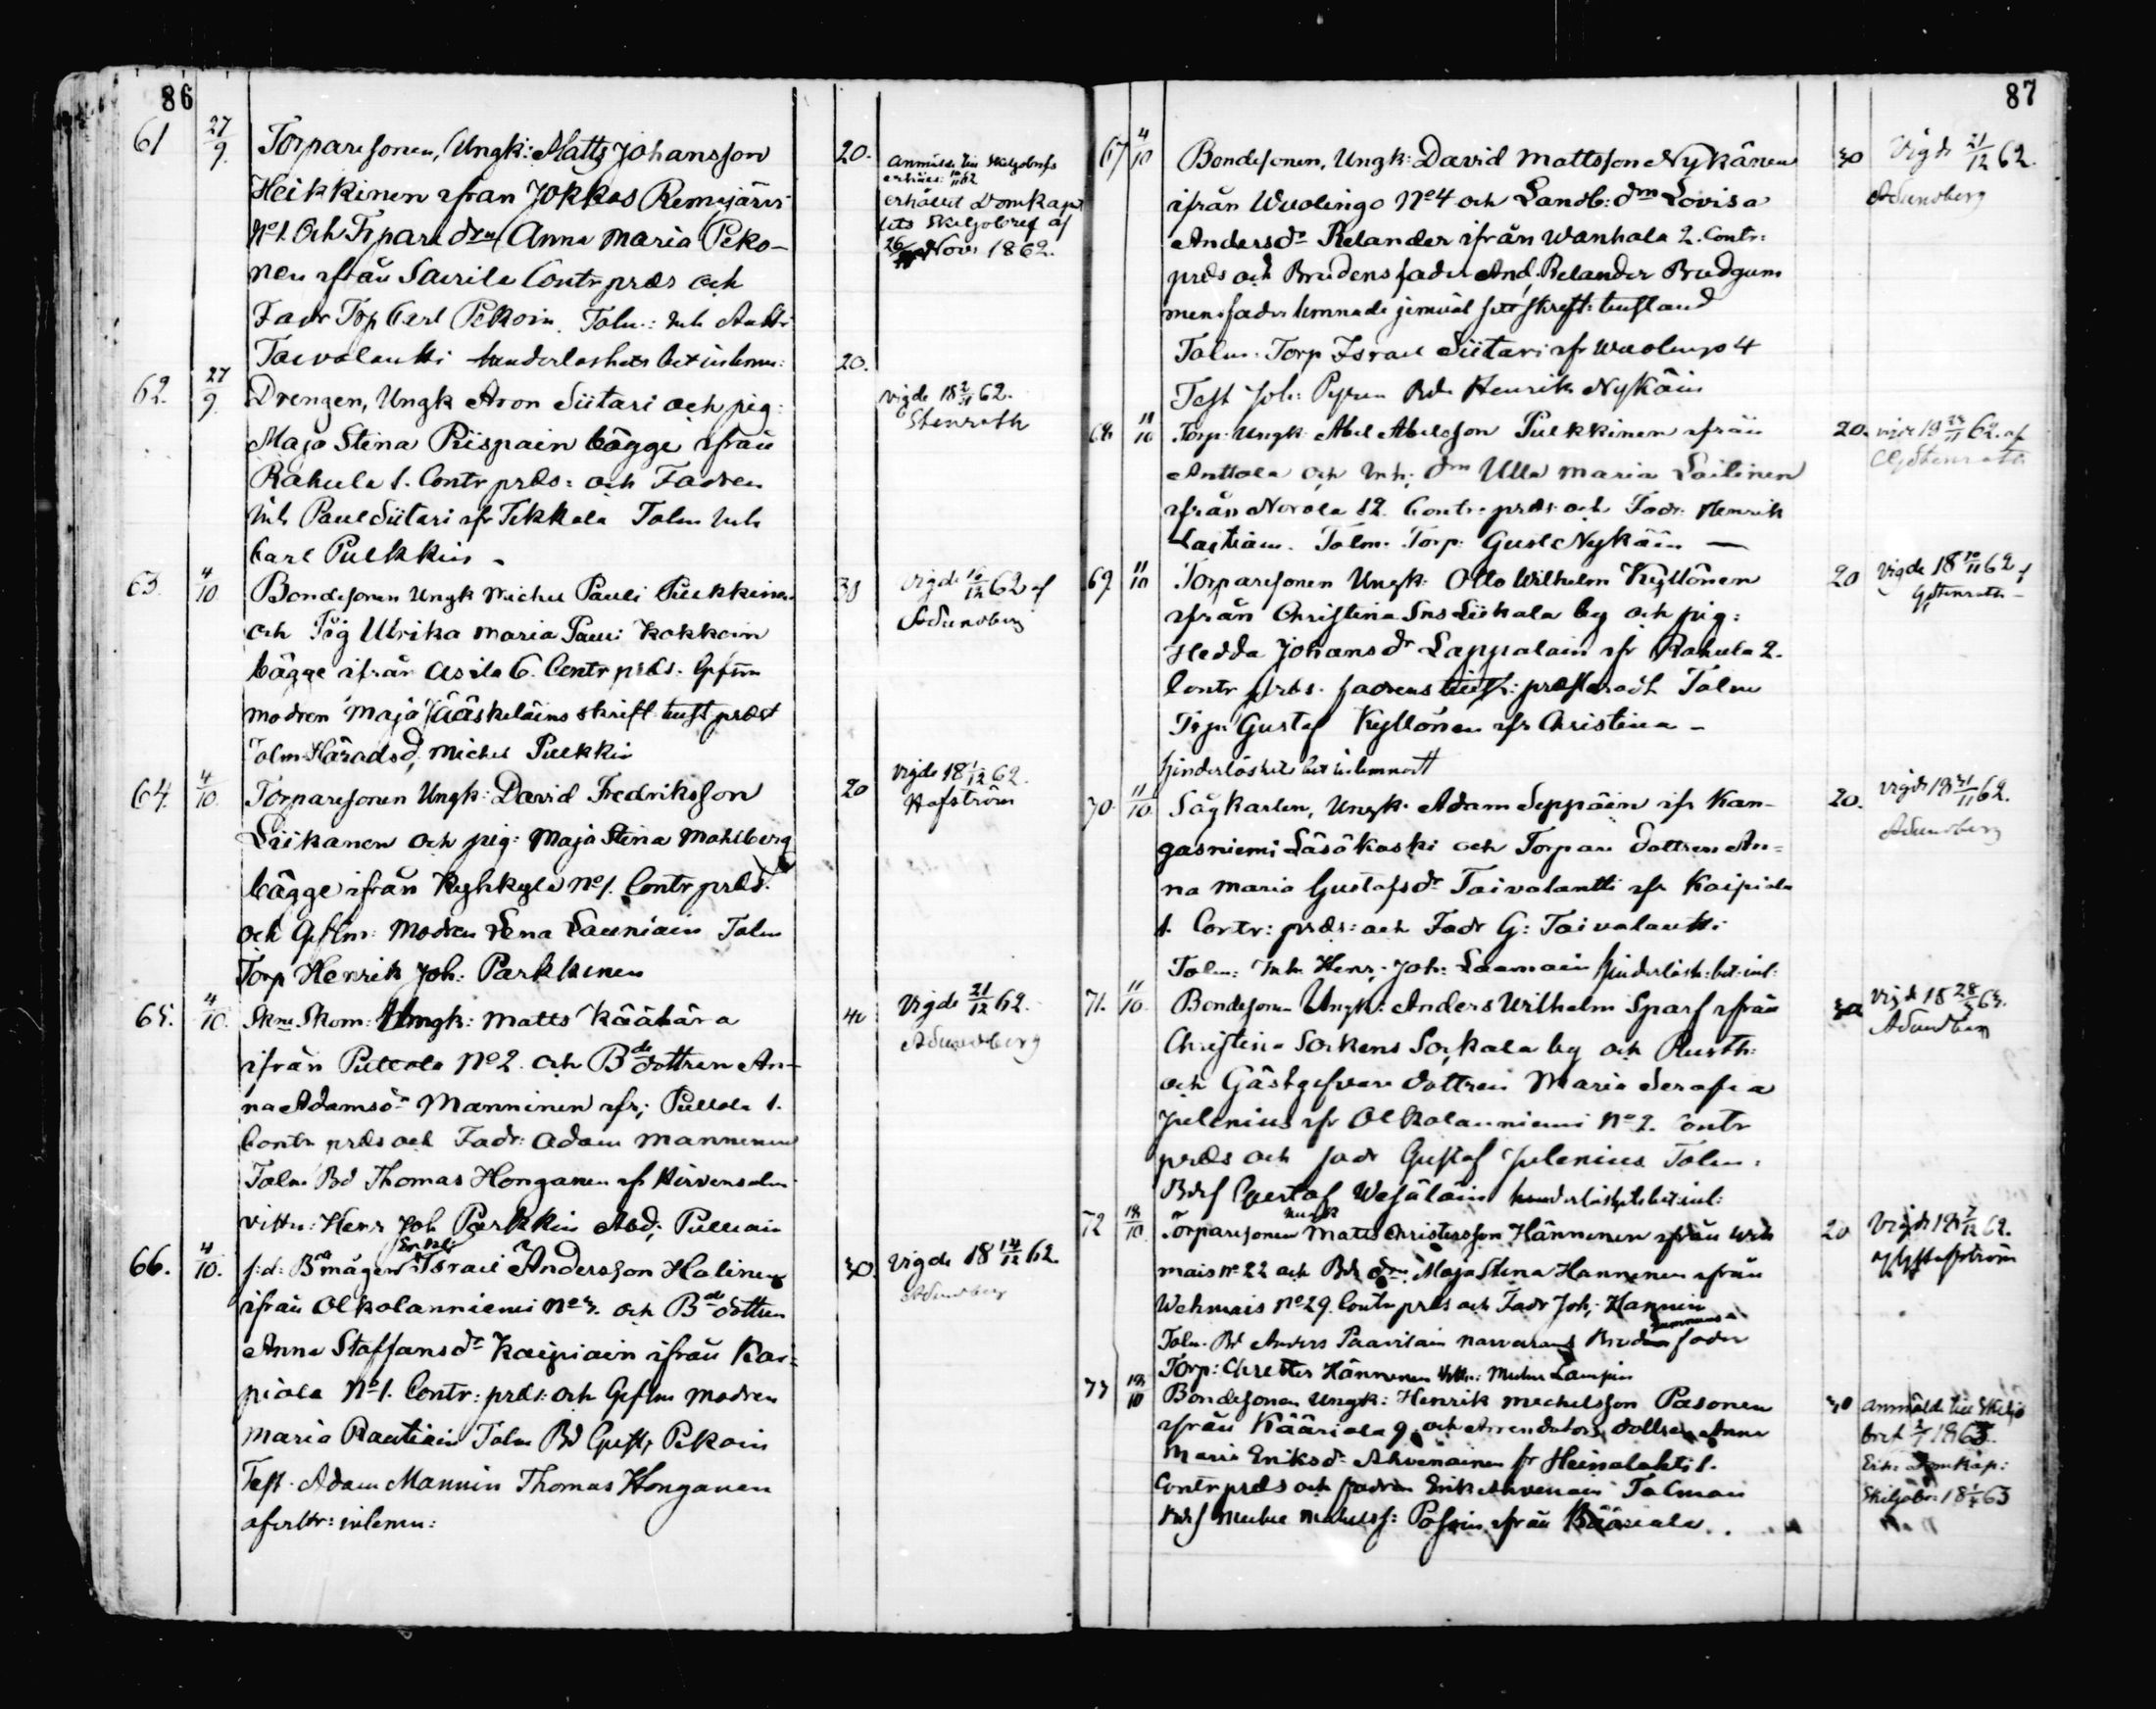 86
61 27/9. Torparesonen, Ungk: Matts Johansson 20.
Heikkinen ifrån Jokkas Remojärvi
No 1. Och Torpare drn Anna Maria Peko-
nen ifrån Sairila Contr præs och
Fadr Torp Carl Pekoin. Talm: Inh Antti
Taivalantti hinderlöshets bet inlemn: 20.
Anmälde till Skiljobrefs
erhåll: 10/11 62
erhållit Domkapit
lets Skiljobref af
26/11 Nov: 1862.
62. 27/9. Drengen, Ungk Aron Siitari och pig:
Maja Stina Piispain bägge ifrån
Rahula 1. Contr præs: och Fadren
Inh Paul Siitari ifr Tikkala Talm Inh
Carl Pulkkin -
vigde 18 2/11 62.
Stenroth
63. 4/10 Bondesonen Ungk Michel Pauli Pulkkinen 30
och Pig Ulrika Maria Paul: Kokkoin
bägge ifrån Asila 6. Contr præs.
modren Maja Jääskeläins skriftl tillst præst
Talm Häradsd, Michel Pulkkin
Vigde 16/12 62 af
ASundberg
64. 4/10. Torparesonen Ungk: David Fredriksson 20
Liikanen och pig: Maja Stina Mahlberg
bägge ifrån Kyhkylä No 1. Contr præs:
och Giftm: Modren Lena Launiain Talm
Torp Henrik Joh: Parkkinen
Vigde 18 1/12 62.
Hafström
65. 4/10. Skom: Ungk: Matts Käähärä 40
ifrån Pullola No 2. och Bde dottren An-
na Adamsdr Manninen ifr; Pullola 1.
Contr præs och Fadr: Adam Manninen
Talm Bd Thomas Honganen ifr Hirvensalm
vittn: Henr Joh Parkkin And; Pulliain
Vigde 21/12 62.
ASundberg
66. 4/10. f:d: Bdmågen Enkl: Israel Andersson Halinen 30.
ifrån Olkolanniemi No 3. och Bde dottren
Anna Staffansdr Kaipiain ifrån Kai-
piala No 1. Contr: præs: och Giftm modren
Maria Rautiain Talm Bd Gust, Pekoin
Test. Adam Mannin Thomas Honganen
afvittr: inlemn:
Vigde 18 14/12 62
ASundberg
87
67 4/10 Bondesonen, Ungk: David Mattsson Nykänen 30
ifrån Wuolingo No 4 och Landb: drn Lovisa
Andersdr Relander ifrån Wanhala 2. Contr:
præs och Brudens fader And, Relander Brudgum
mens fader lemnade jemväl sitt skriftl: tillstånd
Talm: Torp Israel Siitari ifr Wuolingo 4
Test Joh: Bd Henrik Nykäin
Vigde 21/12 62.
ASundberg
68 11/10 Torp: Ungk: Abel Abelsson Pulkkinen ifrån 20.
Anttola och Inh: drn Ulla Maria Laitinen
ifrån Norola 12. Contr: præs: och Fadr: Henrik
Laitiain. Talm: Torp: Gust Nykäin —
vigde 18 23/11 62. af
Stenroth
69. 11/10 Torparesonen Ungk: Otto Wilhelm Kyllönen 20
ifrån Christina Sns Liikala by och pig:
Hedda Johansdr Lappalain ifr Rahula 2.
Contr præs. fadrens tillst: præsteradt Talm
Torp: Gustaf Kyllönen ifr Christina -
hinderlöshets bet inlemnadt
Vigde 18 30/11 62 af
Stenroth -
70. 11/10. Sågkarlen, Ungk: Adam Seppäin ifr Kan- 20.
gasniemi Läsäkoski och Torpare dottren An-
na Maria Gustafsdr Taivalantti ifr Kaipiala
1. Contr: præs: och Fadr G: Taivalantti
Talm: Inh Henr, Joh: Laamain hinderlösh: bet: inl:
vigde 18 62.
ASundberg
71. 11/10. Bondesonen Ungk: Anders Wilhelm Sparf ifrån 30
Christina Sockens Sockala by och Rusth:
och Gästgifvare dottren Maria Serafia
Julenius ifr Olkolanniemi No 2. Contr
præs och fadr Gustaf Julenius Talm:
Bds Gustaf Wesäläin hinderlöshets bet inl:
Vigde 18 63.
ASundberg
72 18/10. Torparesonen Ungk Matts Christersson Hänninen ifrån Weh 20
mais No 22 och Bds drn: Maja Stina Hanninen ifrån
Wehmais No 29. Contr præs och Fadr Joh: Hannin
Talm Bd Anders Paavilain närvarand Brudgummens fader
Torp: Christer Hänninen Vittn: Michel Lampin
Vigde 18 7/12 62.
af Hafström
73 18/10 Bondesonen Ungk: Henrik Mechelsson Pasonen 30
ifrån Kääriala 9. och Arrendators dottren Anna
Maria Eriksdr Ahvenainen fr Heinalahti 1.
Contr præs och fadren Erik Ahvenain Talman
Bds Michel Michelss: Posoin ifrån Kääriala.
anmälde till Skiljo
bref 2/1 1863.
Erh: Domkap:
Skiljobr: 18 63